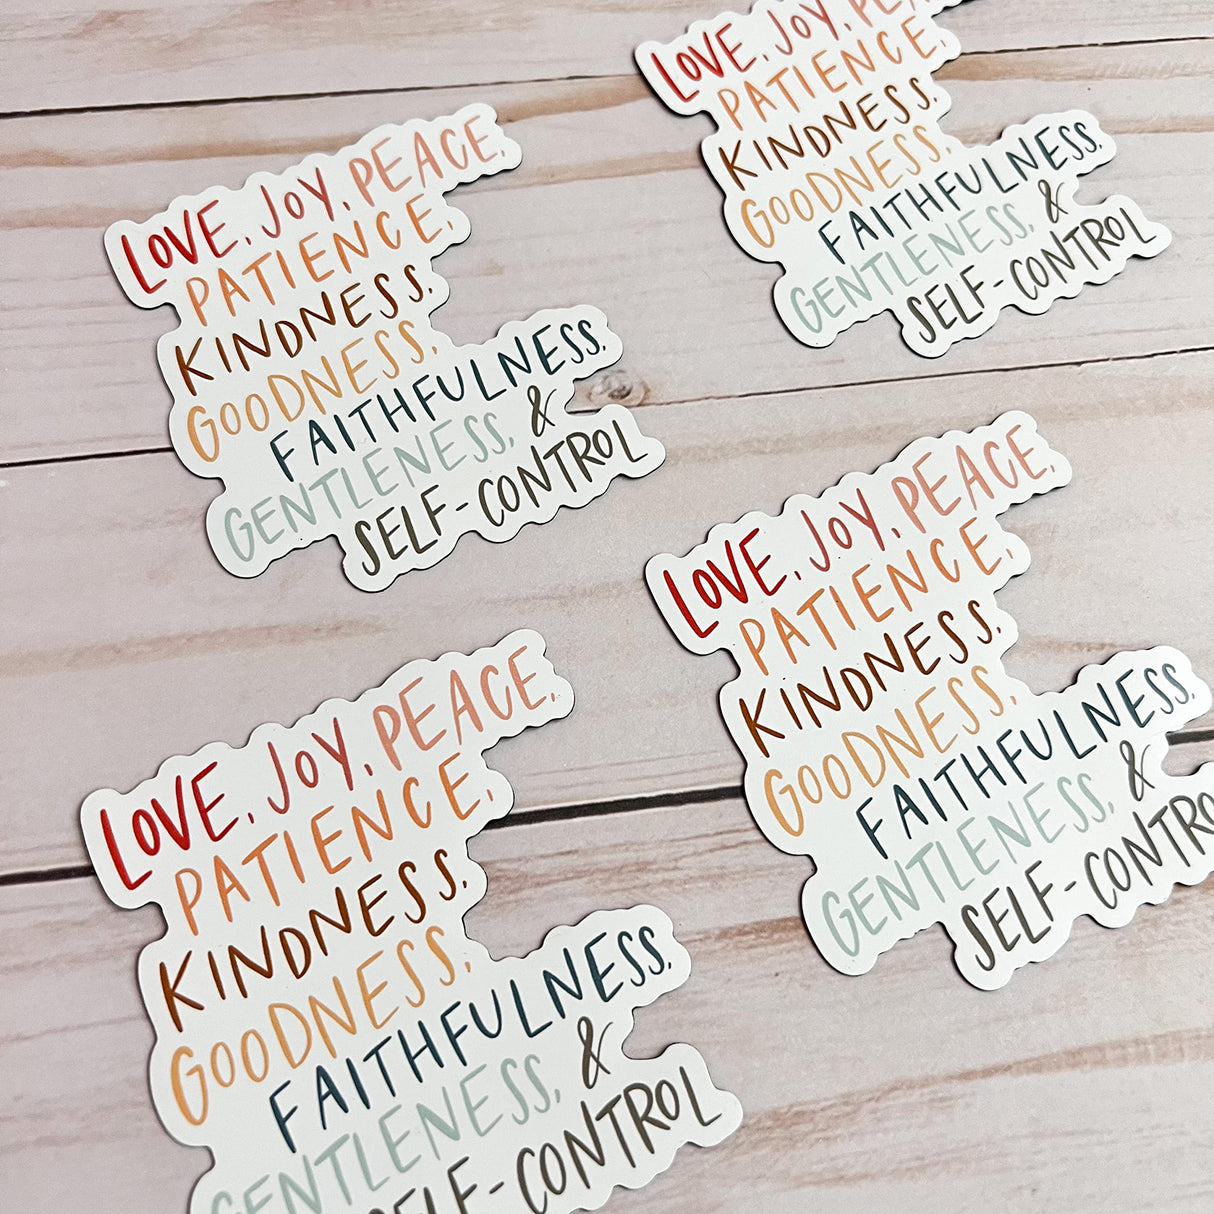 LOVE, JOY, PEACE,
PATIENCE,
KINDNESS,
GOODNESS,
FAITHFULNESS,
GENTLENESS, &
SELF-CONTROL
LOVE, JOY, PEA
PATIENCE,
KINDNESS,
GOODNESS,
FAITHFULNESS,
GENTLENESS, &
SELF-CONTROL
LOVE, JOY, PEACE,
PATIENCE,
KINDNESS,
GOODNESS,
FAITHFULNESS,
GENTLENESS, &
SELF-CONTRO
LOVE, JOY, PEACE,
PATIENCE,
KINDNESS,
GOODNESS,
FAITHFULNESS,
GENTLENESS, &
SELF-CONTROL